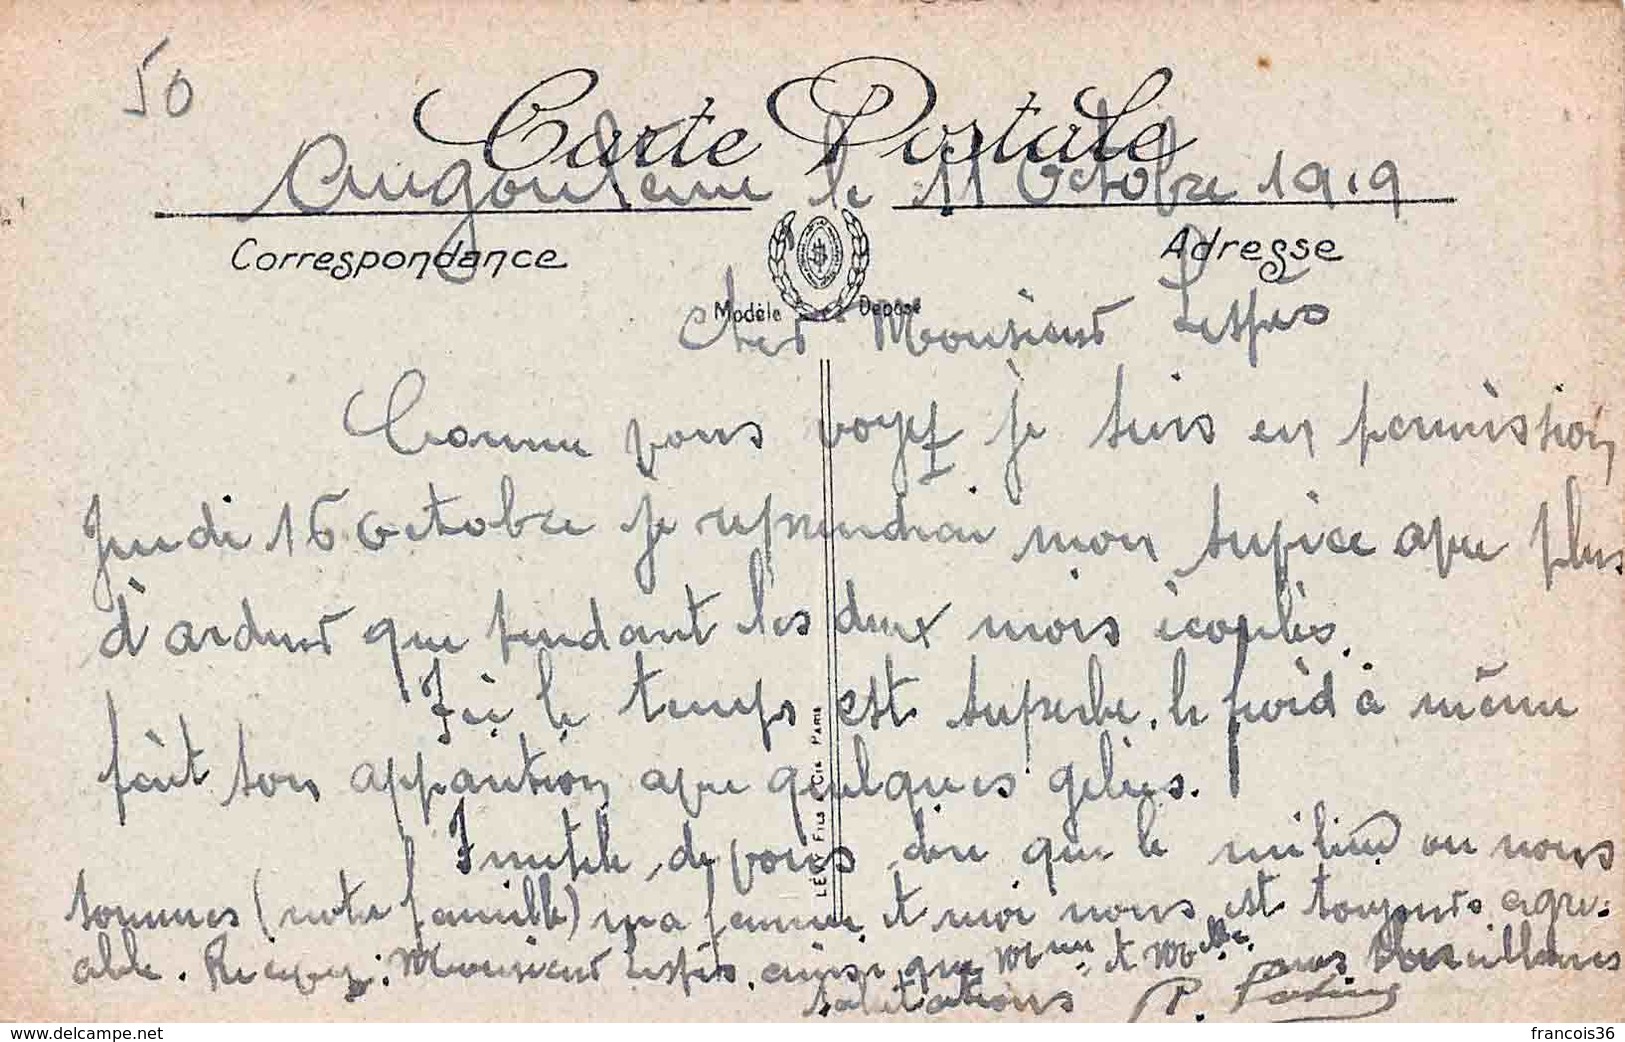 50
Carte Postale
Angoulême le 11 Octobre 1919
Correspondance
Adresse
Modèle Déposé
Cher Monsieur Lespès
Comme vous voyez je suis en permission
Jeudi 16 Octobre je reprendrai mon supice que plus
d'ardeur que pendant les deux mois écoulés.
Ici le temps est superbe, le froid à même
fait son apparition que quelques gelées.
Inutile de vous dire que le milieu ou nous
sommes (notre famille) ma femme et moi nous est toujours agré-
able. Recevez Monsieur Lespès, ainsi que Mme et Melle nos
salutations P.
LÉVY FILS & CIE PARIS
www.delcampe.net
francois36